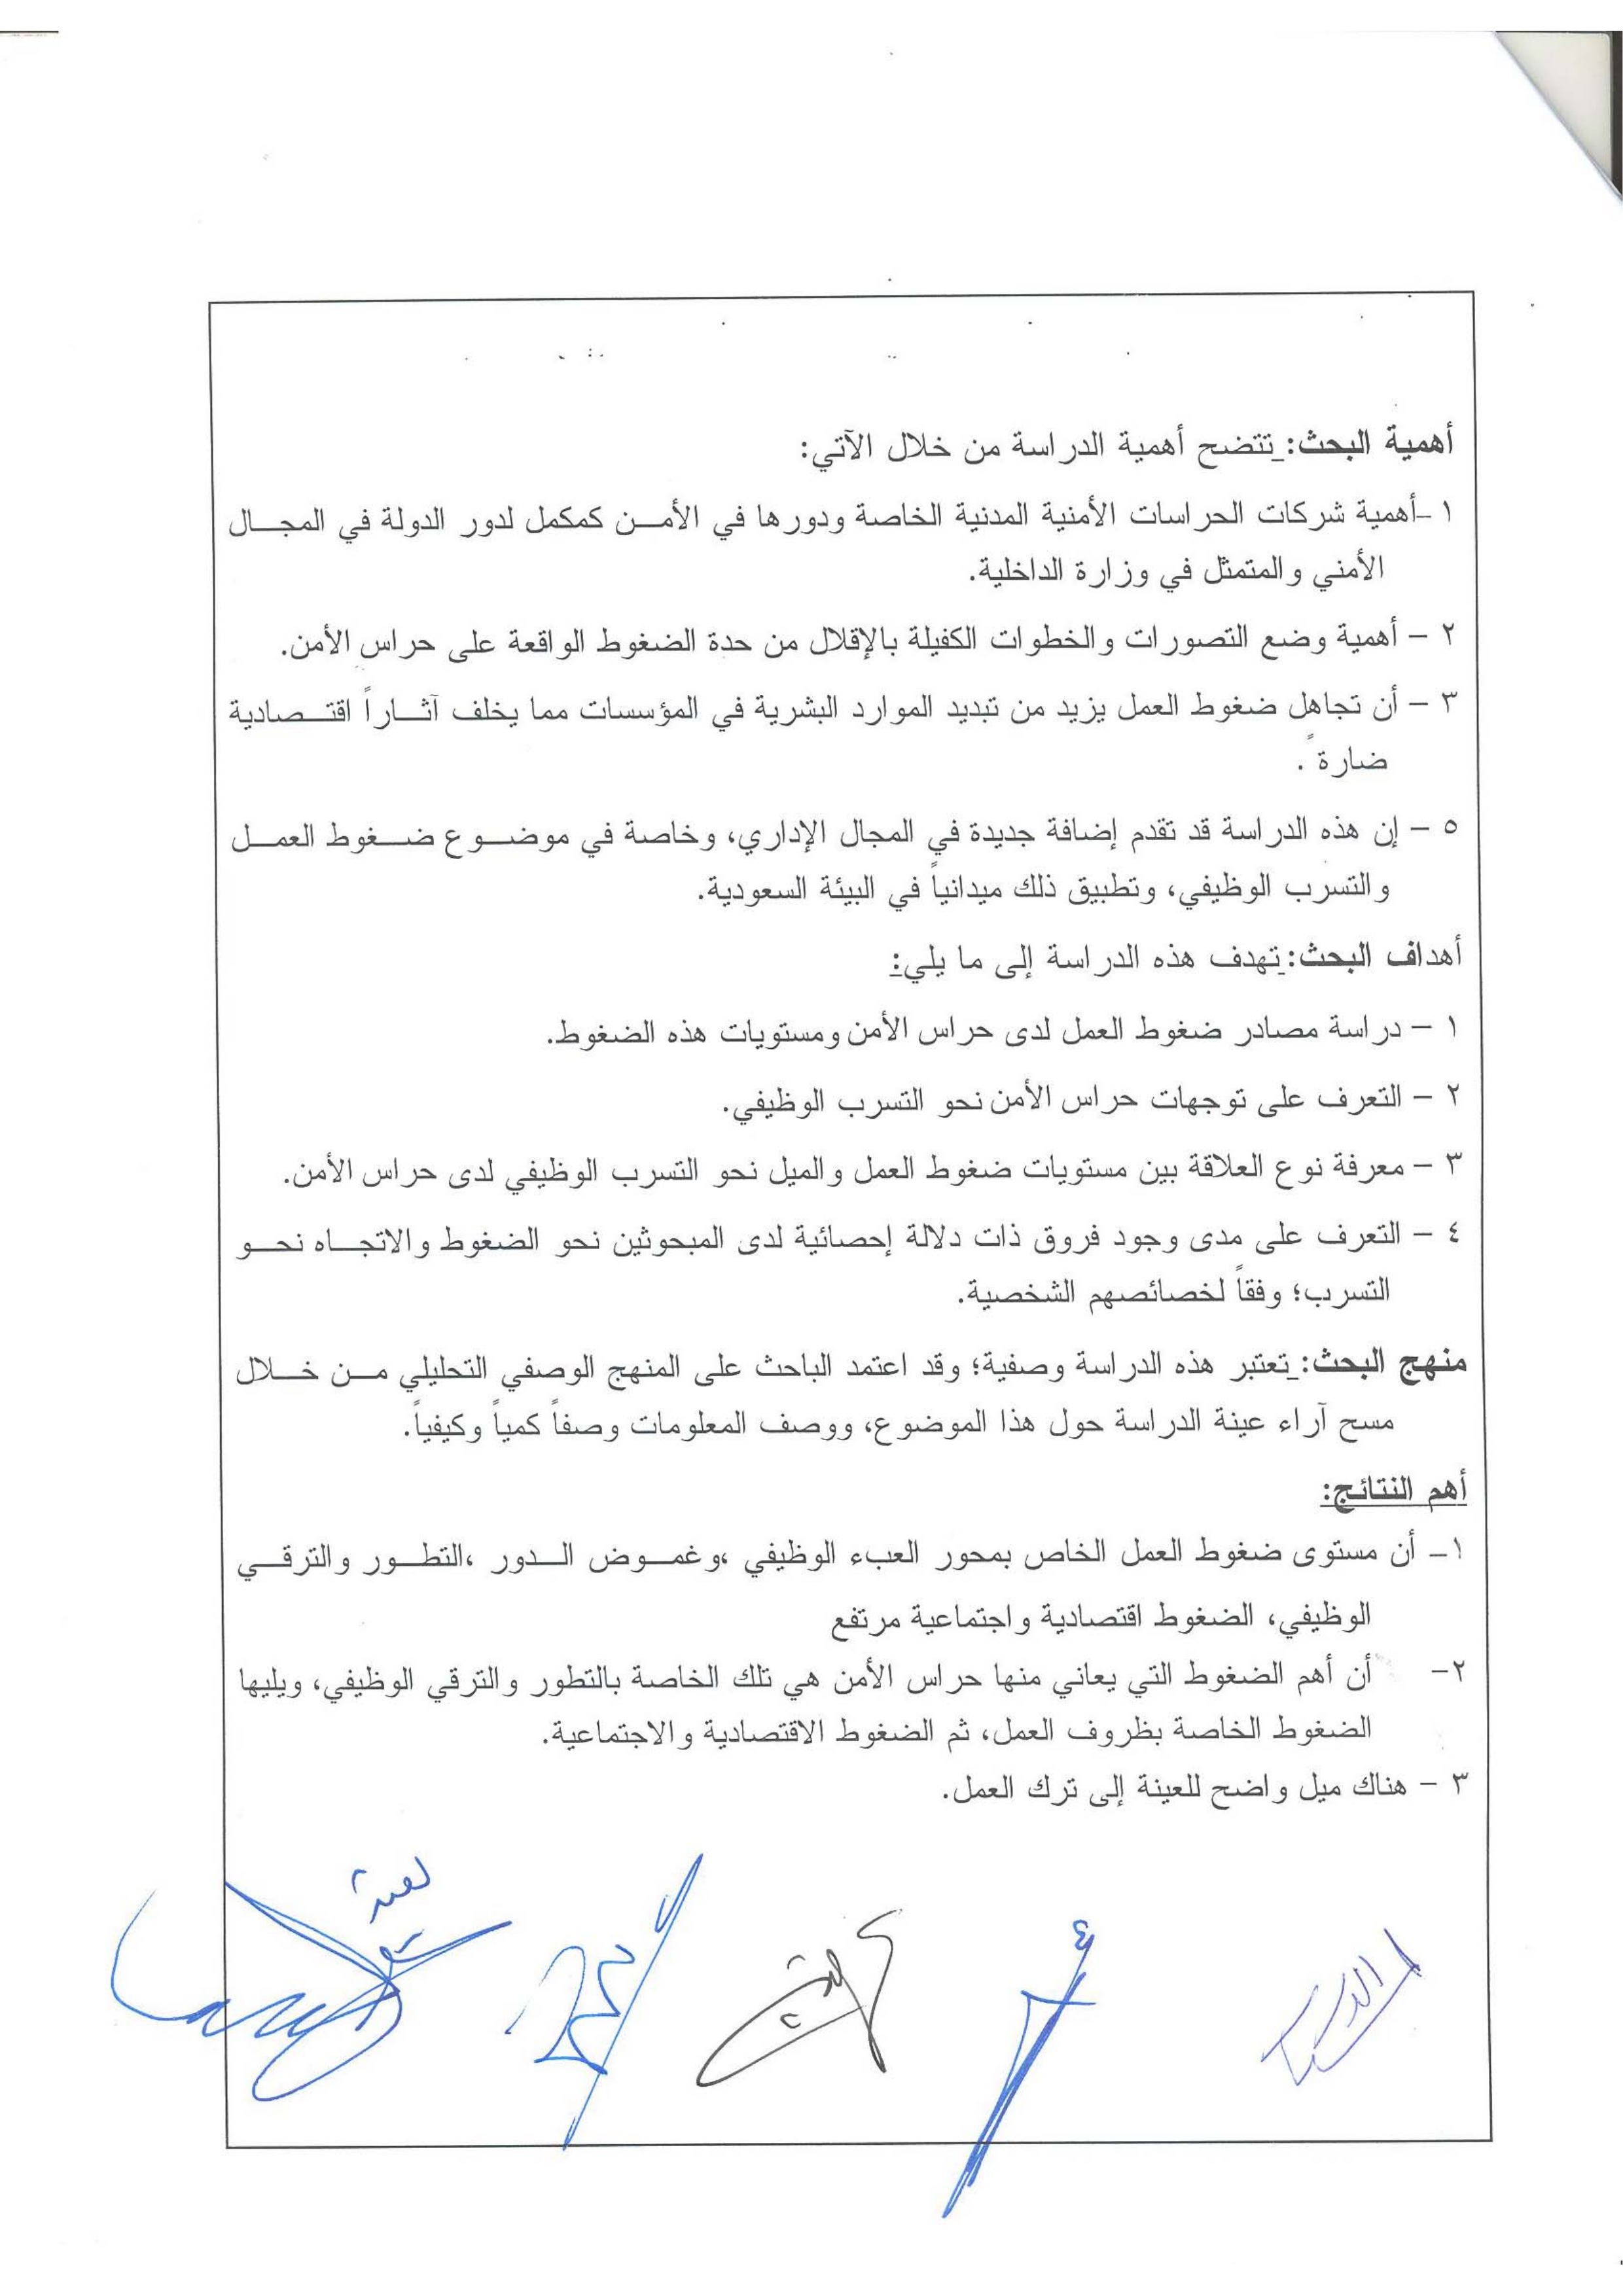 أهمية البحث: تتضح أهمية الدراسة من خلال الآتي:
١ –أهمية شركات الحراسات الأمنية المدنية الخاصة ودورها في الأمن كمكمل لدور الدولة في المجال
الأمني والمتمثل في وزارة الداخلية.
٢ – أهمية وضع التصورات والخطوات الكفيلة بالإقلال من حدة الضغوط الواقعة على حراس الأمن.
٣ – أن تجاهل ضغوط العمل يزيد من تبديد الموارد البشرية في المؤسسات مما يخلف آثاراً اقتصادية
ضارةً .
٥ – إن هذه الدراسة قد تقدم إضافة جديدة في المجال الإداري، وخاصة في موضوع ضغوط العمل
والتسرب الوظيفي، وتطبيق ذلك ميدانياً في البيئة السعودية.
أهداف البحث: تهدف هذه الدراسة إلى ما يلي:
١ – دراسة مصادر ضغوط العمل لدى حراس الأمن ومستويات هذه الضغوط.
٢ – التعرف على توجهات حراس الأمن نحو التسرب الوظيفي.
٣ – معرفة نوع العلاقة بين مستويات ضغوط العمل والميل نحو التسرب الوظيفي لدى حراس الأمن.
٤ – التعرف على مدى وجود فروق ذات دلالة إحصائية لدى المبحوثين نحو الضغوط والاتجاه نحو
التسرب؛ وفقاً لخصائصهم الشخصية.
منهج البحث: تعتبر هذه الدراسة وصفية؛ وقد اعتمد الباحث على المنهج الوصفي التحليلي من خلال
مسح آراء عينة الدراسة حول هذا الموضوع، ووصف المعلومات وصفاً كمياً وكيفياً.
أهم النتائج:
١– أن مستوى ضغوط العمل الخاص بمحور العبء الوظيفي ،وغموض الدور ،التطور والترقي
الوظيفي، الضغوط اقتصادية واجتماعية مرتفع
٢– أن أهم الضغوط التي يعاني منها حراس الأمن هي تلك الخاصة بالتطور والترقي الوظيفي، ويليها
الضغوط الخاصة بظروف العمل، ثم الضغوط الاقتصادية والاجتماعية.
٣ – هناك ميل واضح للعينة إلى ترك العمل.